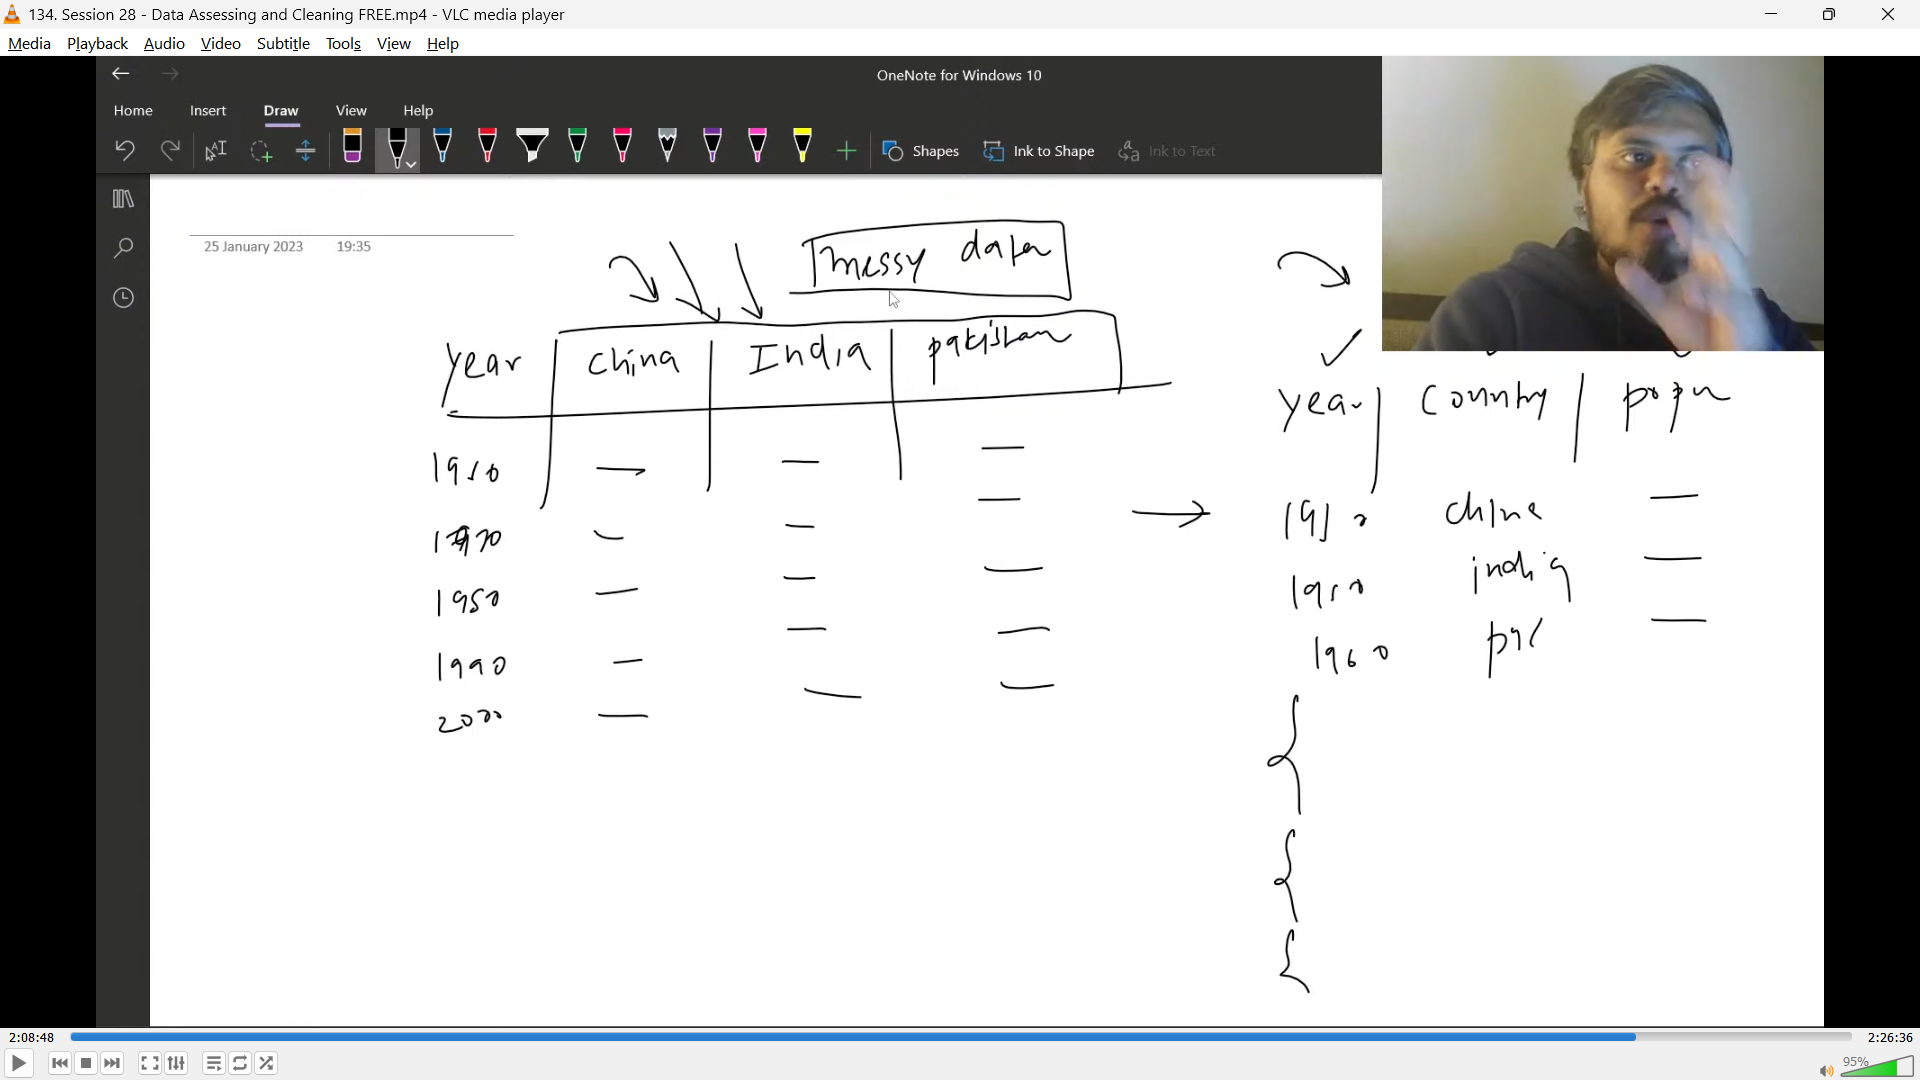 134. Session 28 - Data Assessing and Cleaning FREE.mp4 - VLC media player
Media Playback Audio Video Subtitle Tools View Help
OneNote for Windows 10
Home Insert Draw View Help
Shapes Ink to Shape Ink to Text
25 January 2023 19:35
messy data
year China India pakistan
1950
1970
1950
1990
2000
year Country popu
1950 china
1950 india
1960 pak
2:08:48 2:26:36
95%